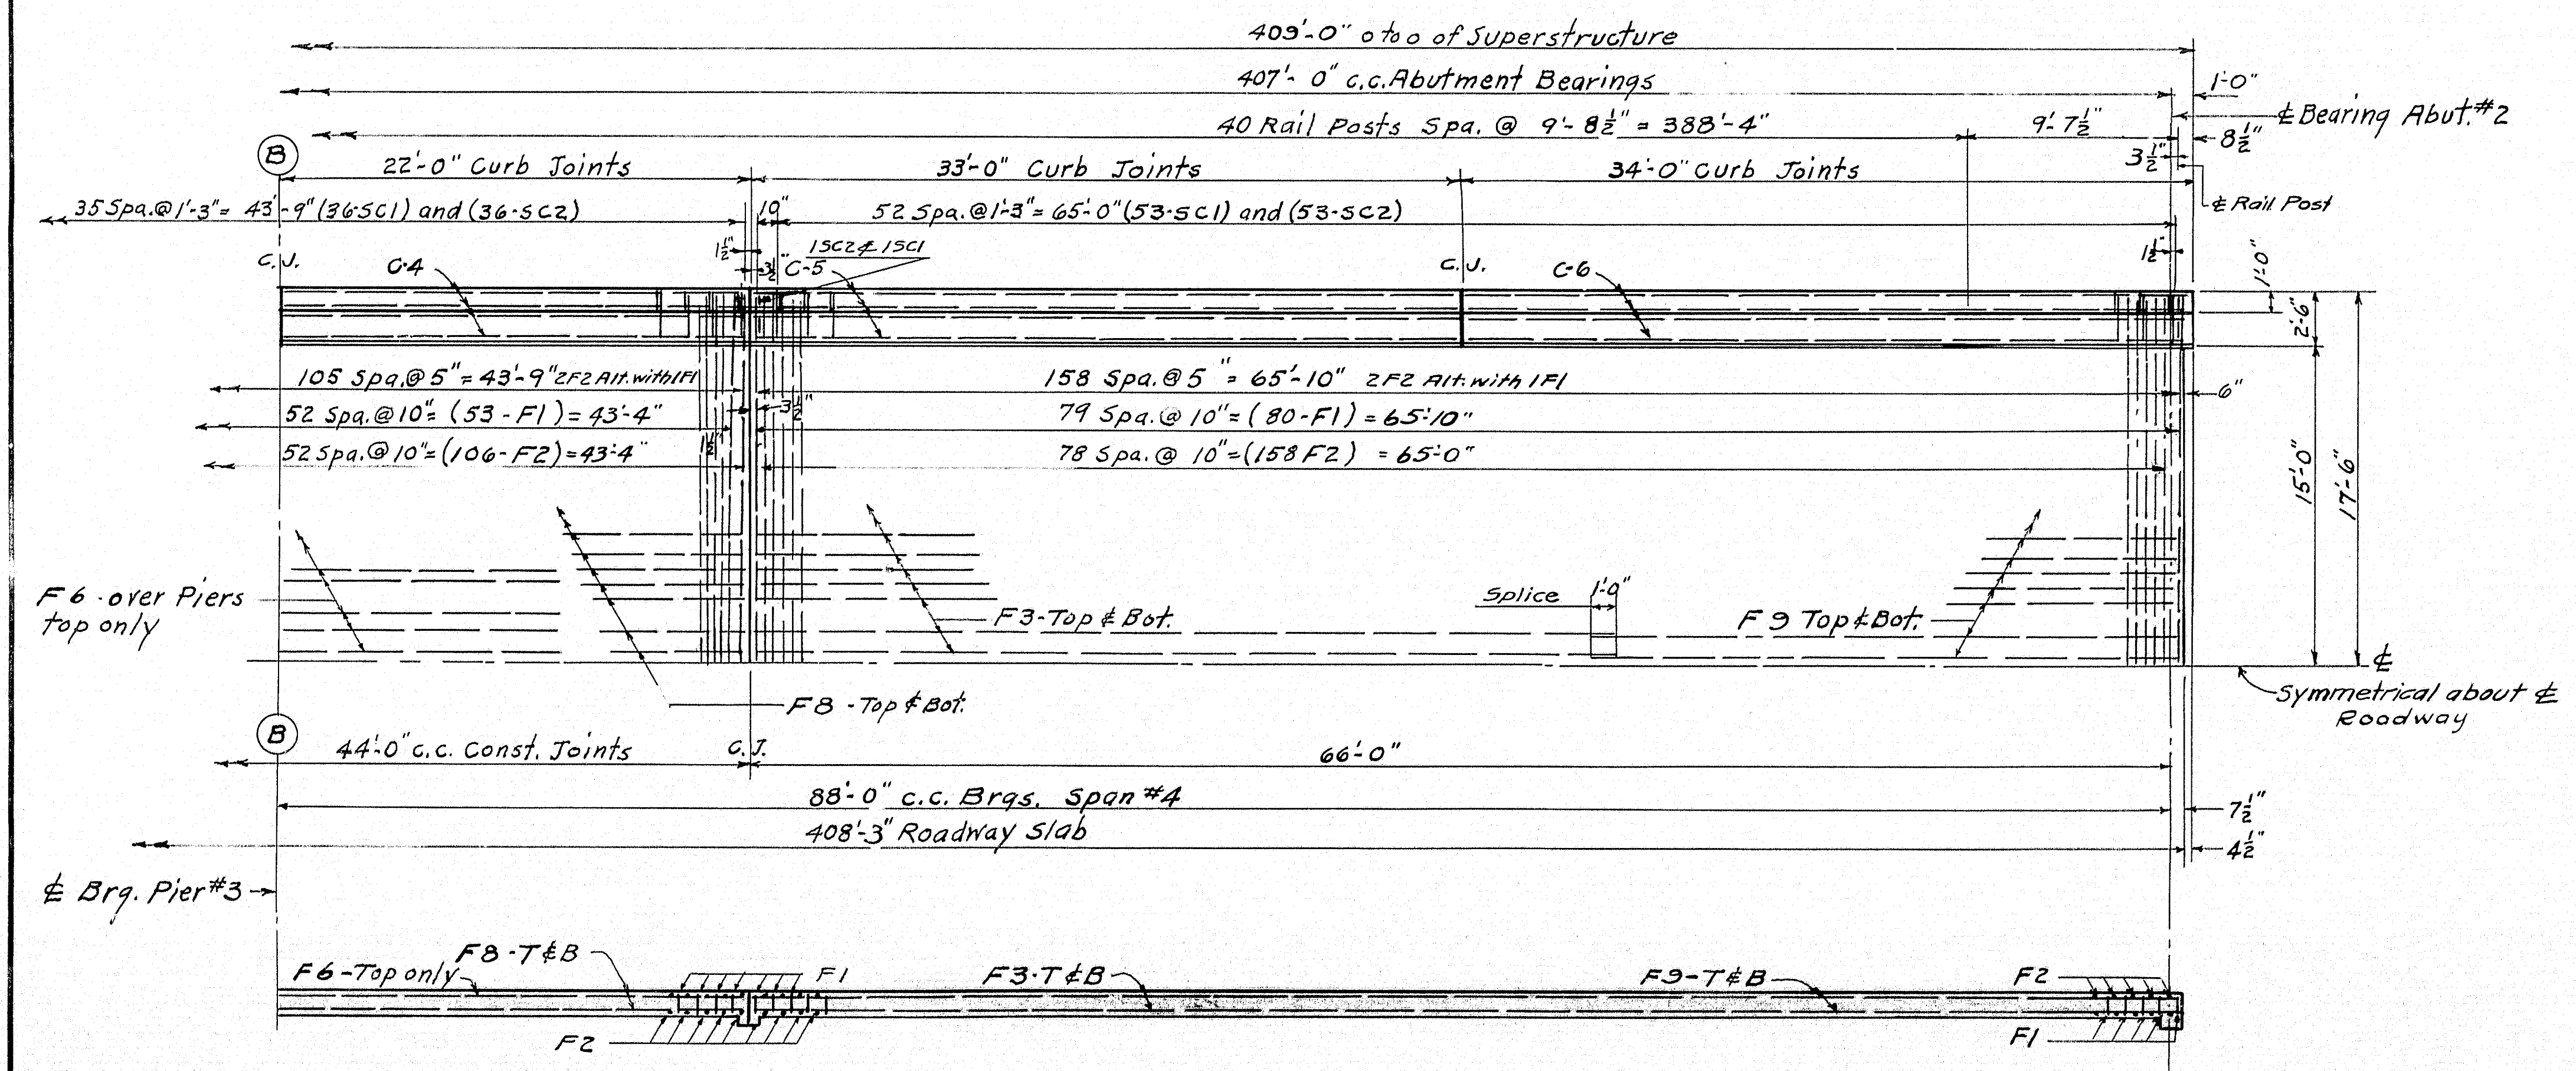 409'-0" o to o of Superstructure
407'-0" c.c. Abutment Bearings
1'-0"
℄ Bearing Abut. #2
40 Rail Posts Spa. @ 9'-8½" = 388'-4"
9'-7½"
8½"
3½"
B
22'-0" Curb Joints
33'-0" Curb Joints
34'-0" Curb Joints
℄ Rail Post
35 Spa. @ 1'-3" = 43'-9" (36-SC1) and (36-SC2)
10"
52 Spa. @ 1'-3" = 65'-0" (53-SC1) and (53-SC2)
1½"
1SC2 & 1SC1
1½"
C.J.
C-4
3½"
C-5
C.J.
C-6
1'-0"
2'-6"
105 Spa. @ 5" = 43'-9" 2F2 Alt. with 1F1
158 Spa. @ 5" = 65'-10" 2F2 Alt. with 1F1
6"
52 Spa. @ 10" = (53-F1) = 43'-4"
3½"
79 Spa. @ 10" = (80-F1) = 65'-10"
1½"
52 Spa. @ 10" = (106-F2) = 43'-4"
78 Spa. @ 10" = (158 F2) = 65'-0"
15'-0"
17'-6"
F6 - over Piers
top only
F3-Top & Bot.
Splice
1'-0"
F9 Top & Bot.
℄
Symmetrical about ℄
Roadway
F8 - Top & Bot.
B
44'-0" c.c. Const. Joints
C.J.
66'-0"
88'-0" c.c. Brgs. Span #4
7½"
408'-3" Roadway Slab
4½"
℄ Brg. Pier #3
F8 - T & B
F6 - Top only
F1
F3 - T & B
F9 - T & B
F2
F2
F1